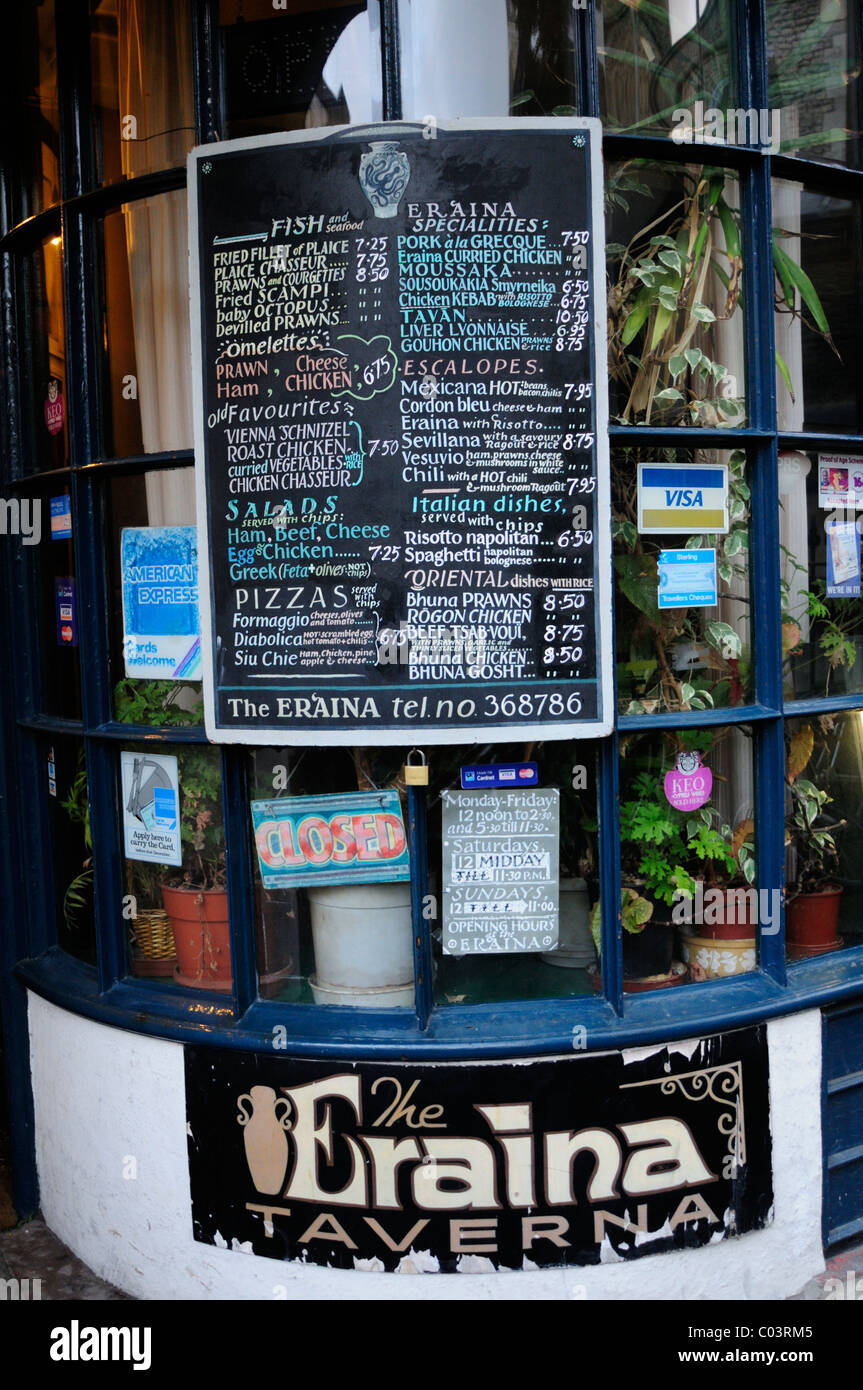 FISH and seafood
FRIED FILLET of PLAICE 7·25
PLAICE CHASSEUR.... 7·75
PRAWNS and COURGETTES 8·50
Fried SCAMPI ... " "
baby OCTOPUS ... " "
Devilled PRAWNS.... " "
Omelettes
PRAWN, Cheese
Ham, CHICKEN 6·75
Old Favourites
VIENNA SCHNITZEL
ROAST CHICKEN
curried VEGETABLES with RICE
CHICKEN CHASSEUR
7·50
SALADS
served with chips:
Ham, Beef, Cheese
Egg & Chicken...... 7·25
Greek (Feta + olives NOT chips)
PIZZAS served with chips
Formaggio cheeses, olives and tomato.....
Diabolica HOT· scrambled egg, hot tomato + chilli
Siu Chie Ham, Chicken, pine apple & cheese....
6·75
ERAINA
SPECIALITIES:
PORK à la GRECQUE... 7·50
Eraina CURRIED CHICKEN "
MOUSSAKA ............ "
SOUSOUKAKIA Smyrneika 6·50
Chicken KEBAB with RISOTTO BOLOGNESE ... 6·75
TAVAN ............ 10·50
LIVER LYONNAISE .... 6·95
GOUHON CHICKEN PRAWNS & RICE 8·75
ESCALOPES.
Mexicana HOT: beans, bacon, chilis 7·95
Cordon bleu cheese & ham " "
Eraina with Risotto.... " "
Sevillana with a savoury Ragout & rice 8·75
Vesuvio ham, prawns, cheese & mushrooms in white sauce. " "
Chili with a HOT & mushroom Ragout 7·95
Italian dishes,
served with chips
Risotto napolitan ... 6·50
Spaghetti napolitan bolognese ... " "
ORIENTAL dishes WITH RICE
Bhuna PRAWNS 8·50
ROGON CHICKEN " "
BEEF TSAB YOUI, WITH PRAWNS, GARLIC and THINLY SLICED VEGETABLES 8·75
Bhuna CHICKEN... 8·50
BHUNA GOSHT... " "
The ERAINA tel. no. 368786
VISA
Sterling
Travellers Cheques
Proof of Age Scheme
WE'RE IN IT!
AMERICAN EXPRESS
Cards Welcome
Apply here to carry the Card.
CLOSED
Monday-Friday:
12 noon to 2·30,
and 5·30 till 11·30
Saturdays,
12 MIDDAY
TILL 11·30 P.M.
SUNDAYS,
12 TILL 11·00.
OPENING HOURS
at the
ERAINA
KEO
KEO
CYPRUS WINES
SOLD HERE
The
Eraina
TAVERNA
alamy
Image ID: C03RM5
www.alamy.com